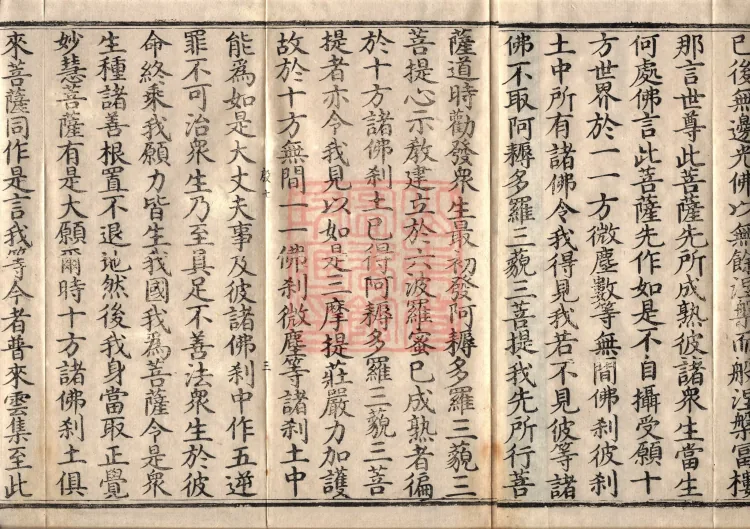 已後無邊光佛以無餘涅槃而般涅槃當樓
那言世尊此菩薩先所成熟彼諸衆生當生
何處佛言此菩薩先作如是不自攝受願十
方世界於一一方微塵數等無間佛刹彼刹
土中所有諸佛令我得見我若不見彼等諸
佛不取阿耨多羅三藐三菩提我先所行菩
薩道時勸發衆生最初發阿耨多羅三藐三
菩提心示敎建立於六波羅蜜已成熟者徧
於十方諸佛刹土已得阿耨多羅三藐三菩
提者亦令我見以如是三摩提莊嚴力加護
故於十方無間一一佛刹微塵等諸刹土中
三
能爲如是大丈夫事及彼諸佛刹中作五逆
罪不可治衆生乃至具足不善法衆生於彼
命終乘我願力皆生我國我爲菩薩令是衆
生種諸善根置不退地然後我身當取正覺
妙慧菩薩有是大願爾時十方諸佛刹土俱
來菩薩同作是言我等今者普來雲集至此